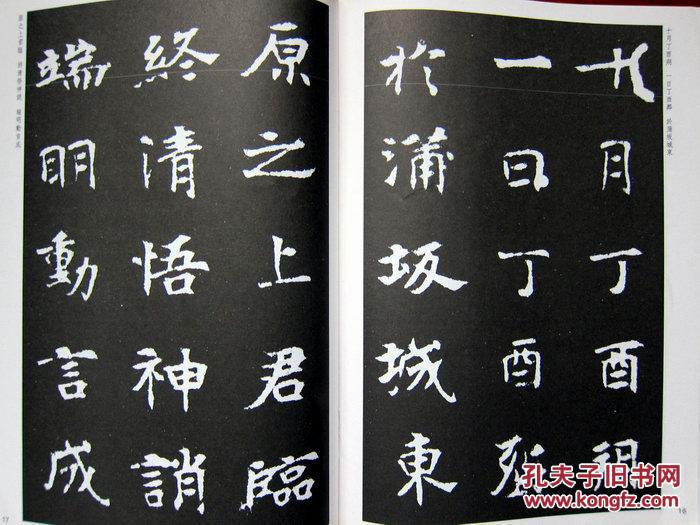 十月丁酉
一日丁酉
於蒲坂城東
十月丁酉朔 一日丁酉 於蒲坂城東
16
原之上君臨
終清悟神誚
端明動言成
原之上君臨 終清悟神誚 端明動言成
17
孔夫子旧书网
www.kongfz.com